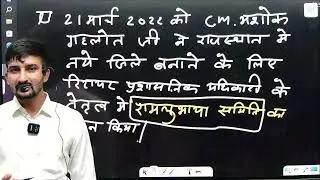 21 मार्च 2022 को CM. अशोक
गहलोत जी ने राजस्थान में
नये जिले बनाने के लिए
रिटायर प्रशासनिक अधिकारी के
नेतृत्व में रामलुभाया समिति का
किया।